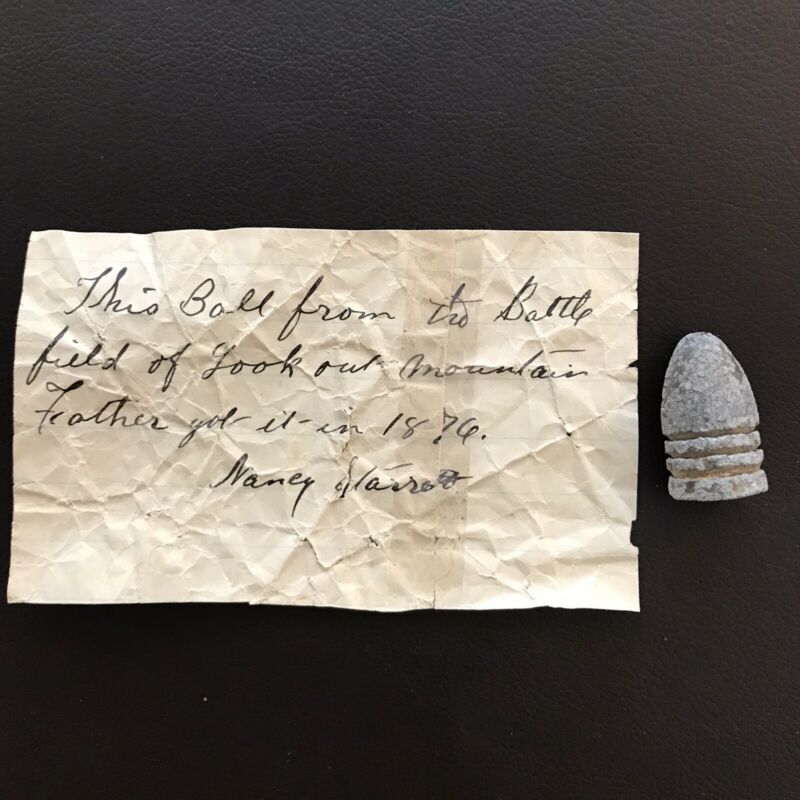 This Ball from the Battle
field of Look out mountain
Feather got it in 1876.
Nancy